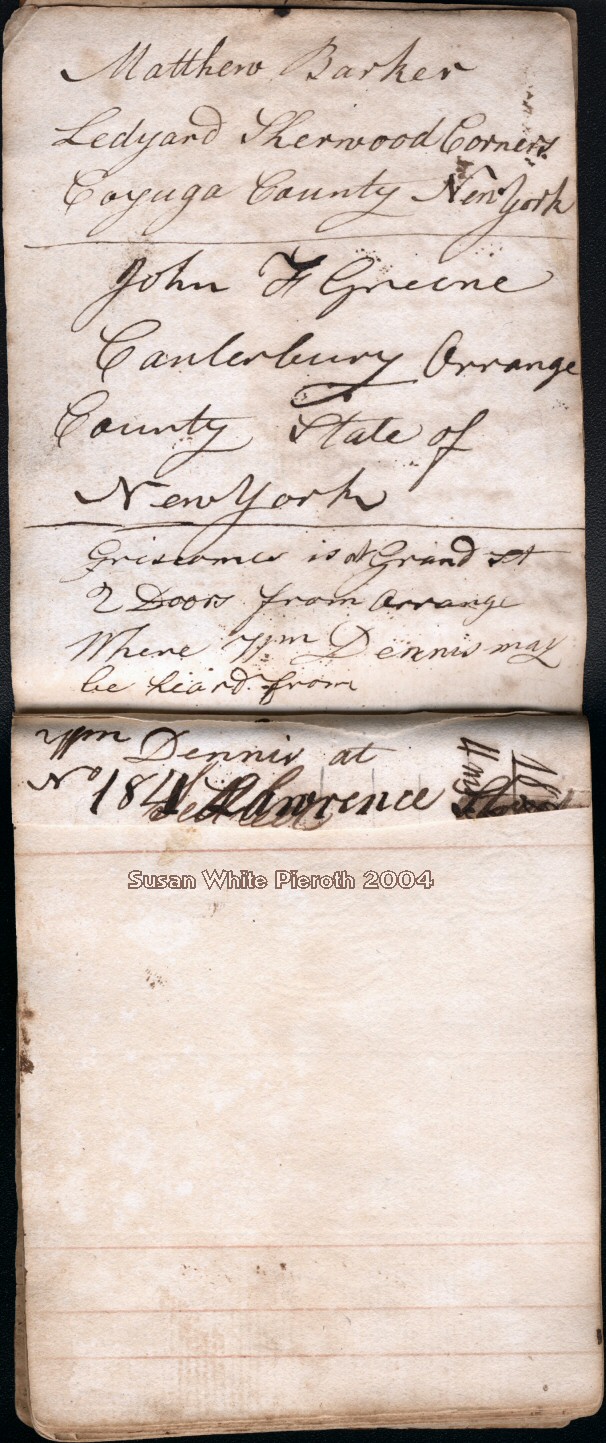 Matthew Barker
Ledyard Sherwood Corners
Coyuga County New York
John F Greene
Canterbury Orrange
County State of
New York
Griscomes is at Grand St
2 Doors from Orrange
Where Wm Dennis may
be heard from
Wm Dennis at
No 184 Lawrence Street
Susan White Pieroth 2004